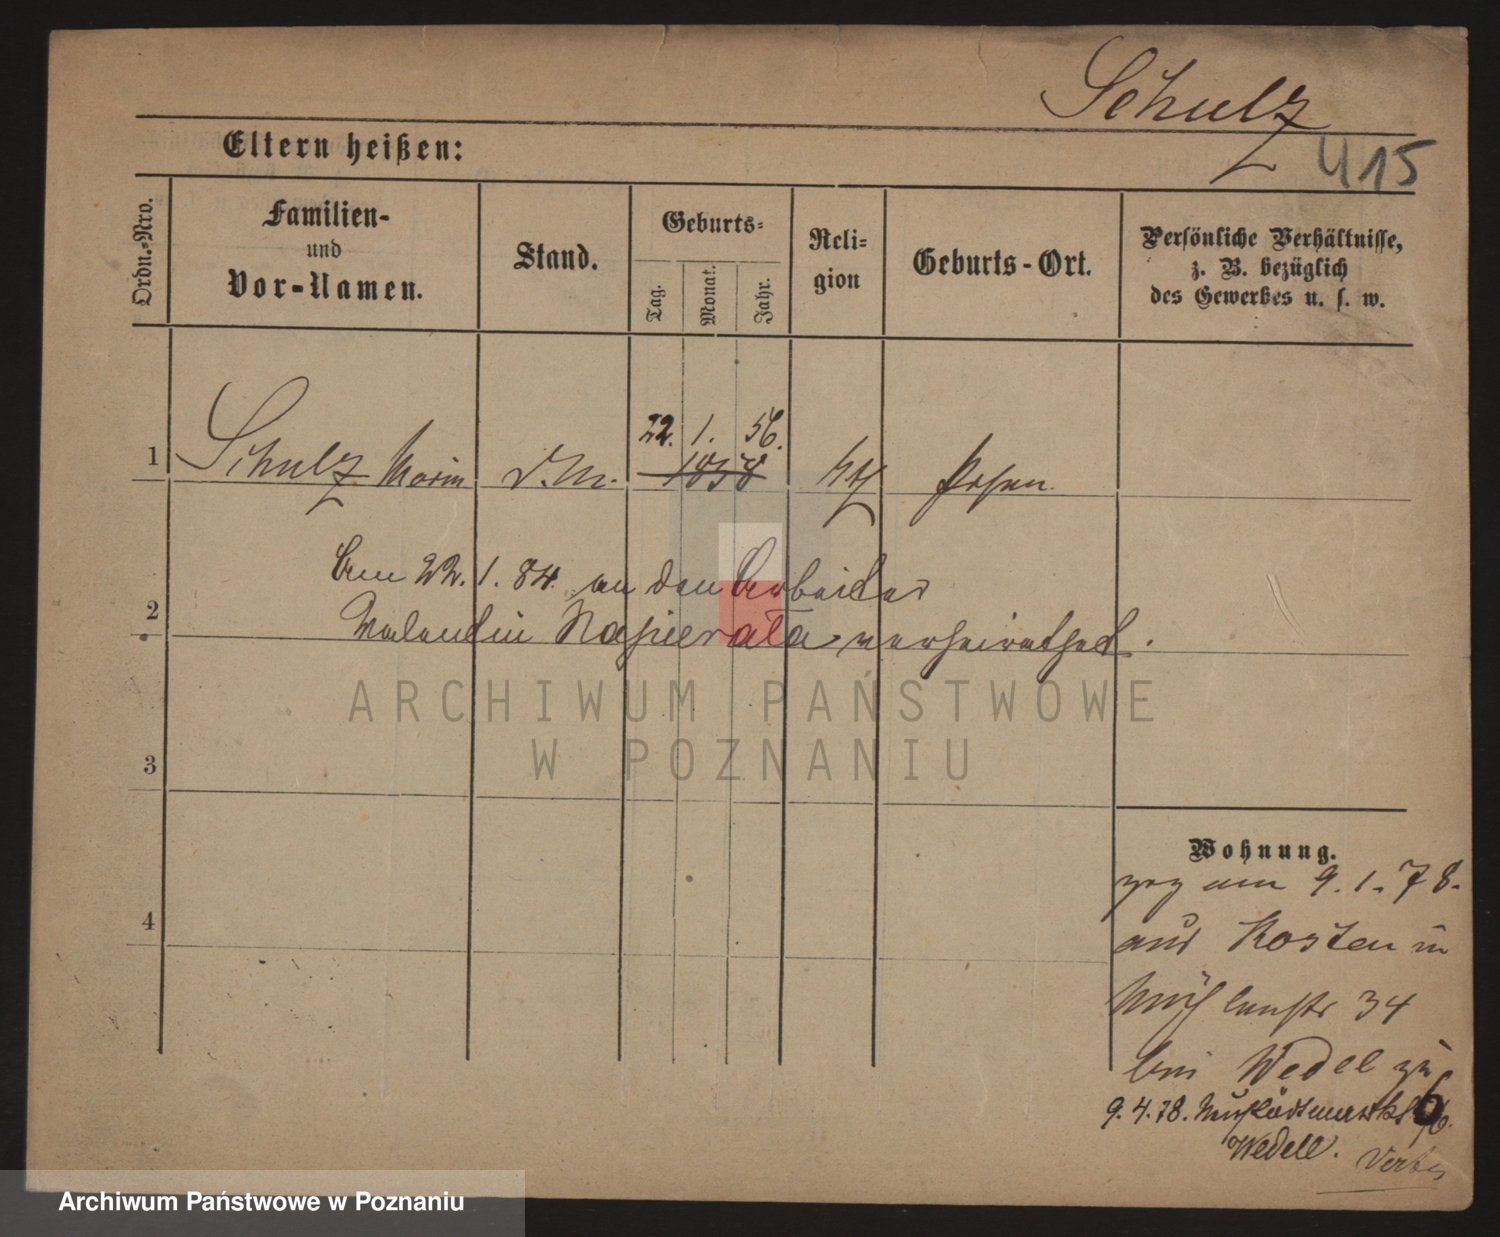 Schulz
415
Eltern heißen:
Ordn.-Nro.
Familien-
und
Vor-Namen.
Stand.
Geburts-
Tag.
Monat.
Jahr.
Reli-
gion
Geburts-Ort.
Persönliche Verhältnisse,
z. B. bezüglich
des Gewerbes u. s. w.
22. 1. 56.
1 Schulz Marie d.M. 1858 Posen
Am 22.1.84. an den Arbeiter
2
Valentin Napierała verheirathet.
ARCHIWUM PAŃSTWOWE
W POZNANIU
3
4
Wohnung.
zog am 9.1.78.
aus Kosten in
Mühlenstr 34
bei Wedel zu
9.4.78. Neustädtmarkt 6
Wedell.
Archiwum Państwowe w Poznaniu